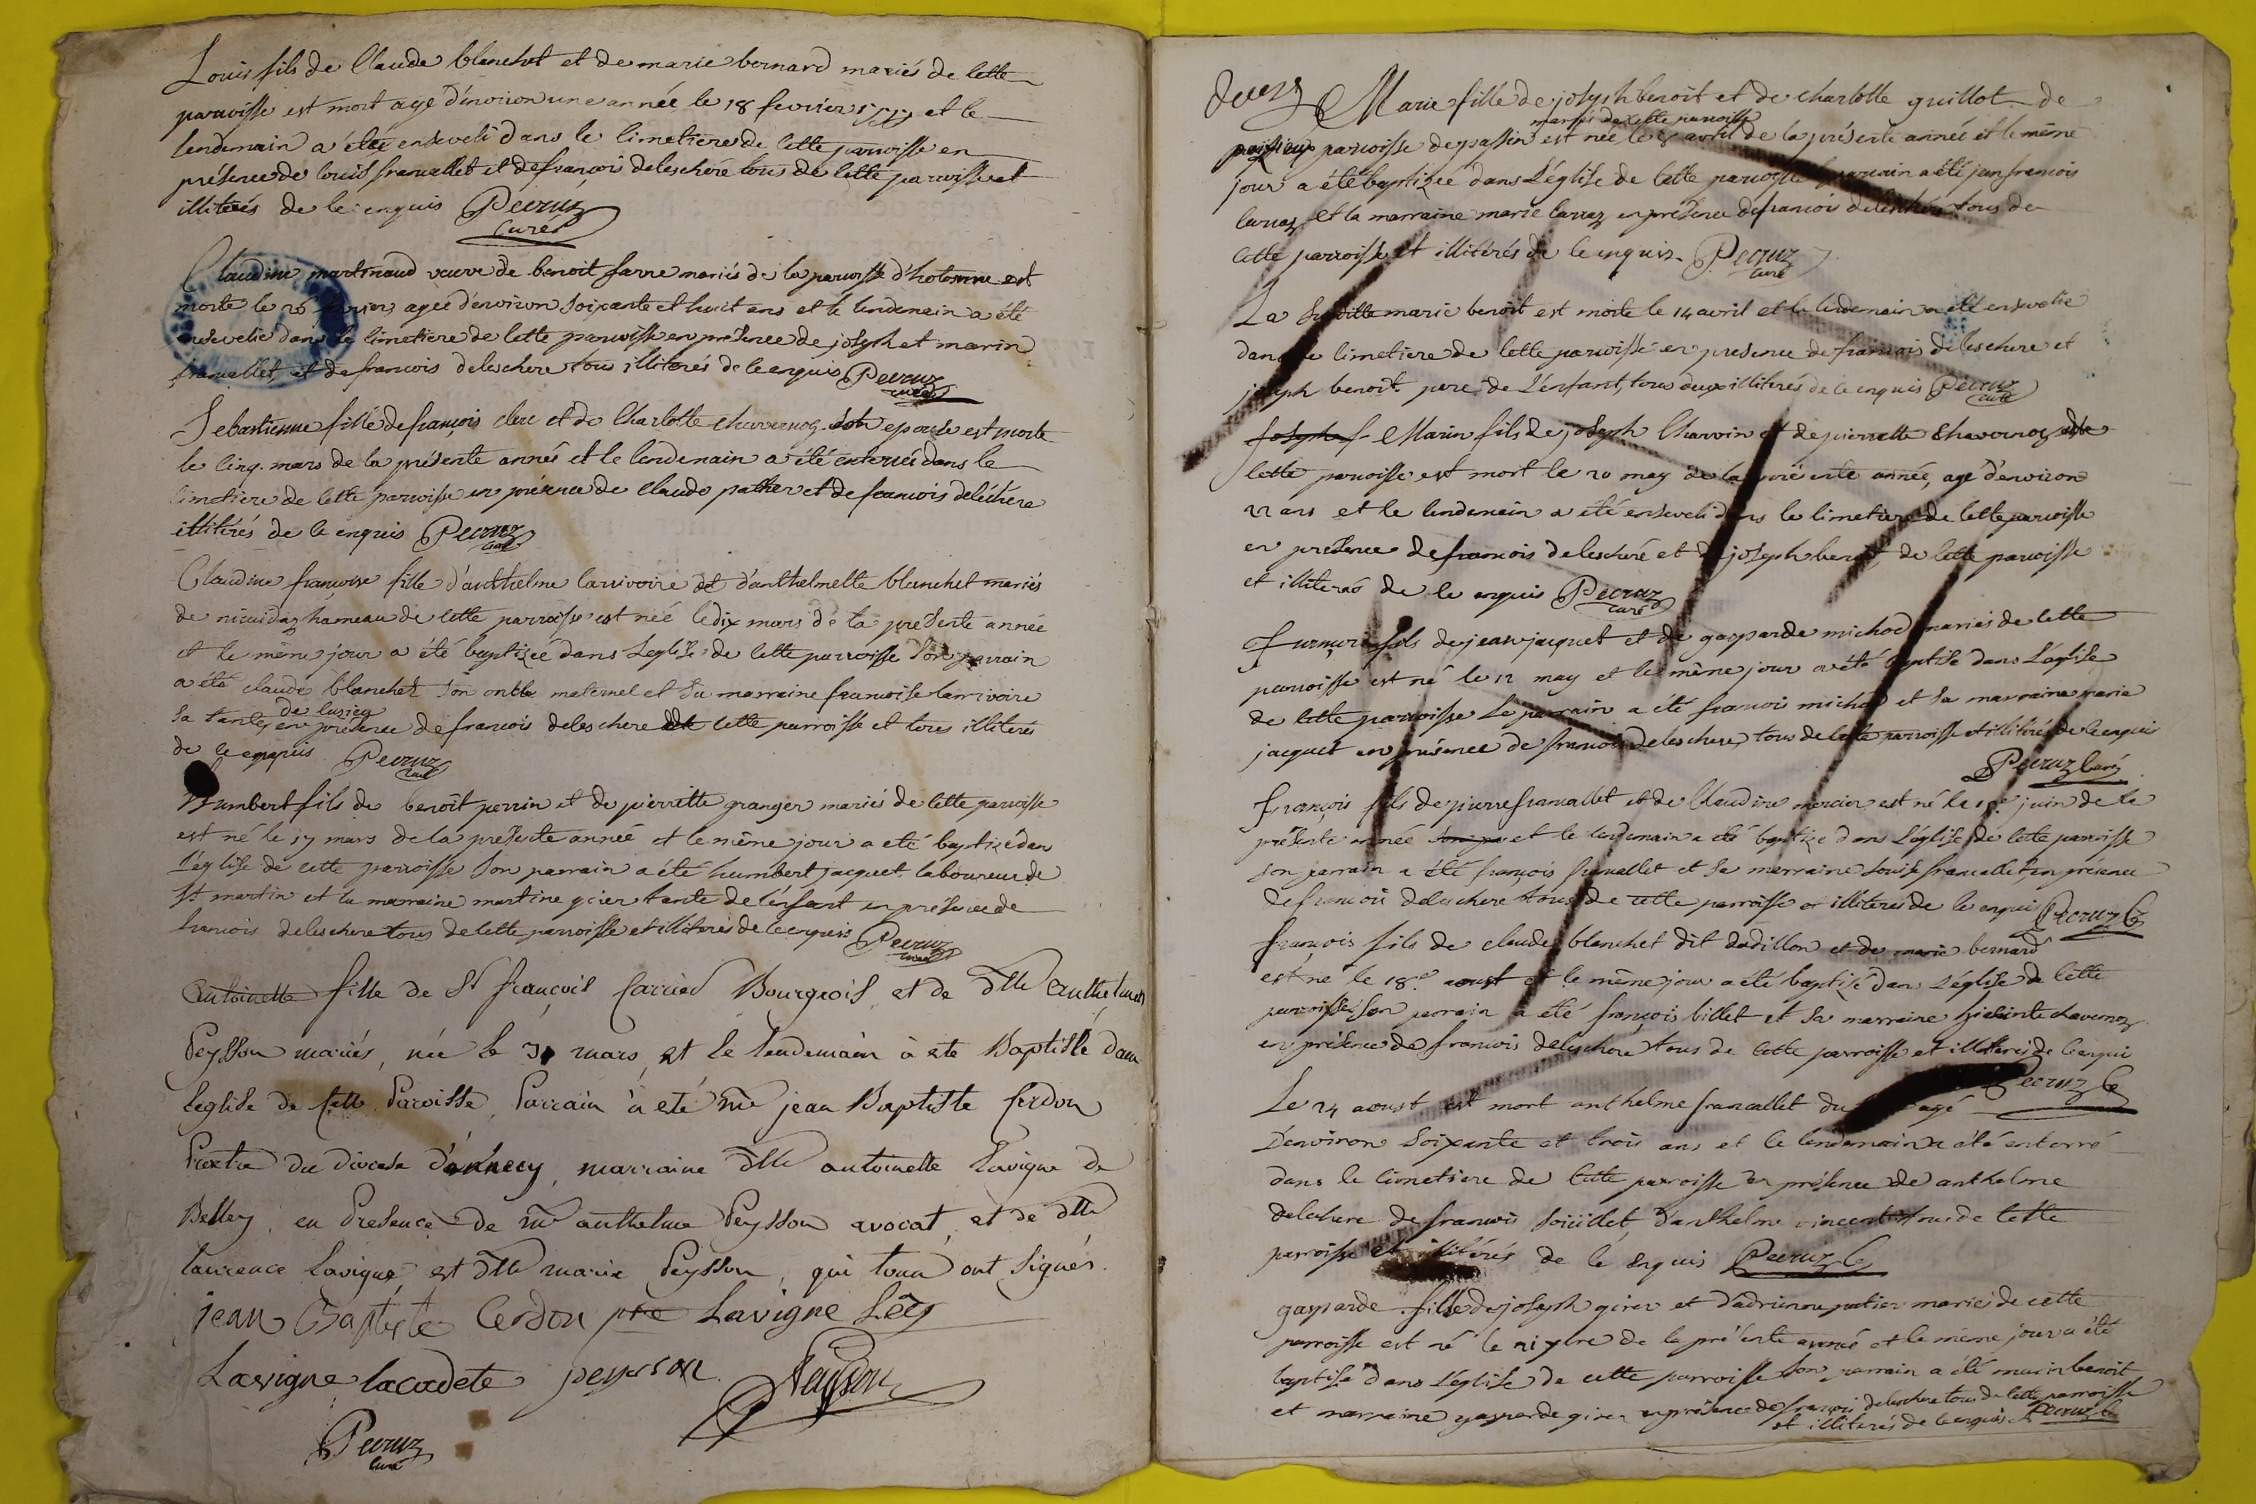 Louis fils de Claude blanchet et de marie bernard mariés de cette
parroisse est mort agé d'environ une année le 18 fevrier 1777 et le
lendemain a été enseveli dans le cimetiere de cette parroisse en
présence de louis francallet et de françois deleschere tous de cette parroisse et
illiterés de ce enquis Pecruz
curé
Claudine martinaud veuve de benoit farre mariés de la parroisse d'hotonne est
morte le 26 agée d'environ soixante et huit ans et le lendemain a été
ensevelie dans le cimetiere de cette parroisse en présence de joseph et marin
francallet, et de francois deleschere tous illiterés de ce enquis Pecruz
curé
Sebastienne fille de françois clerc et de Charlotte chavernoz son epouse est morte
le cinq mars de la présente année et le lendemain a été enterrée dans le
cimetiere de cette parroisse en présence de Claude pather et de francois deléchere
illitérés de ce enquis Pecruz
curé
Claudine françoise fille d'anthelme larrivoire et d'anthelmette blanchet mariés
de hameau de cette parroisse est née le dix mars de la presente année
et le même jour a été baptizée dans l'eglise de cette parroisse son parrain
a été claude blanchet son oncle maternel et sa marraine francoise larrivoire
sa tante en présence de francois deleschere de cette parroisse et tous illiterés
de ce enquis Pecruz
curé
Humbert fils de benoît perrin et de pierrette granger mariés de cette parroisse
est né le 17 mars de la présente année et le même jour a été baptizé dans
l'église de cette parroisse son parrain a été humbert jacquet laboureur de
st martin et la marraine martine girer tante de l'enfant en présence de
francois deleschere tous de cette parroisse et illiterés de ce enquis Pecruz
curé
Antoinette fille de Sr françois Carrier Bourgeois, et de dlle Anthelmette
Peysson mariés, née le 31 mars, et le lendemain à eté Baptisée dans
leglise de cette Paroisse, Parrain à eté mre jean Baptiste Cerdon
Prêtre du diocese d'annecy, marraine dlle antoinette Lavigne de
Belley, en Presence de mre anthelme Peysson avocat, et de dlle
laurence Lavigne et dlle marie Peysson, qui tous ont Signés.
jean Baptiste Cerdon ptre Lavigne
Lavigne lacadete peysson. Peysson
Pecruz
curé
Marie fille de joseph benoit et de charlotte guillot de
mariés de cette parroisse
parroisse de passin est née le 8 avril de la présente année et le même
jour a été baptizée dans l'église de cette parroisse le parrain a été jean francois
carraz et la marraine marie carraz en présence de francois deleschere tous de
cette parroisse et illiterés de ce enquis Pecruz
curé
La susditte marie benoit est morte le 14 avril et le lendemain a été ensevelie
dans le cimetiere de cette parroisse en presence de francois deleschere et
joseph benoit pere de l'enfant, tous deux illiterés de ce enquis Pecruz
curé
Marin fils de joseph Charvin et de pierrette Chavernoz de
cette parroisse est mort le 20 may de la présente année, agé d'environ
22 ans et le lendemain a été enseveli dans le cimetiere de cette parroisse
en présence de francois deleschere et de joseph benoit de cette parroisse
et illiterés de ce enquis Pecruz
curé
françois fils de jean jacquet et de gasparde michod mariés de cette
parroisse est né le 12 may et le même jour a été baptisé dans l'eglise
de cette parroisse le parrain a été francois michod et sa marraine marie
jacquet en présence de francois deleschere tous de cette parroisse et illiterés de ce enquis
Pecruz Curé
françois fils de pierre francallet et de Claudine mercier est né le 1er juin de la
présente année et le lendemain a été baptize dans l'église de cette parroisse
son parrain a été françois francallet et sa marraine louise francallet en présence
de francois deleschere tous de cette parroisse et illiterés de ce enquis Pecruz Cé
françois fils de claude blanchet dit dadillon et de marie bernard
est né le 18e aoust et le même jour a été baptizé dans l'église de cette
parroisse son parrain a été françois billet et sa marraine hiacinte chavernoz
en présence de francois deleschere tous de cette parroisse et illiterés de ce enquis
Pecruz Cé
Le 24 aoust est mort anthelme francallet du agé
d'environ soixante et trois ans et le lendemain a été enterré
dans le cimetiere de cette parroisse en présence de anthelme
deleschere de francois d'anthelme vincent tous de cette
parroisse et illitérés de ce enquis Pecruz Cé
gasparde fille de joseph girer et d'adrienne patier mariés de cette
parroisse est né le 21 7bre de la présente année et le même jour a été
baptisé dans l'église de cette parroisse son parrain a été marin benoit
et marraine gasparde girer en présence de francois deleschere tous de cette parroisse
et illiterés de ce enquis Pecruz Cé